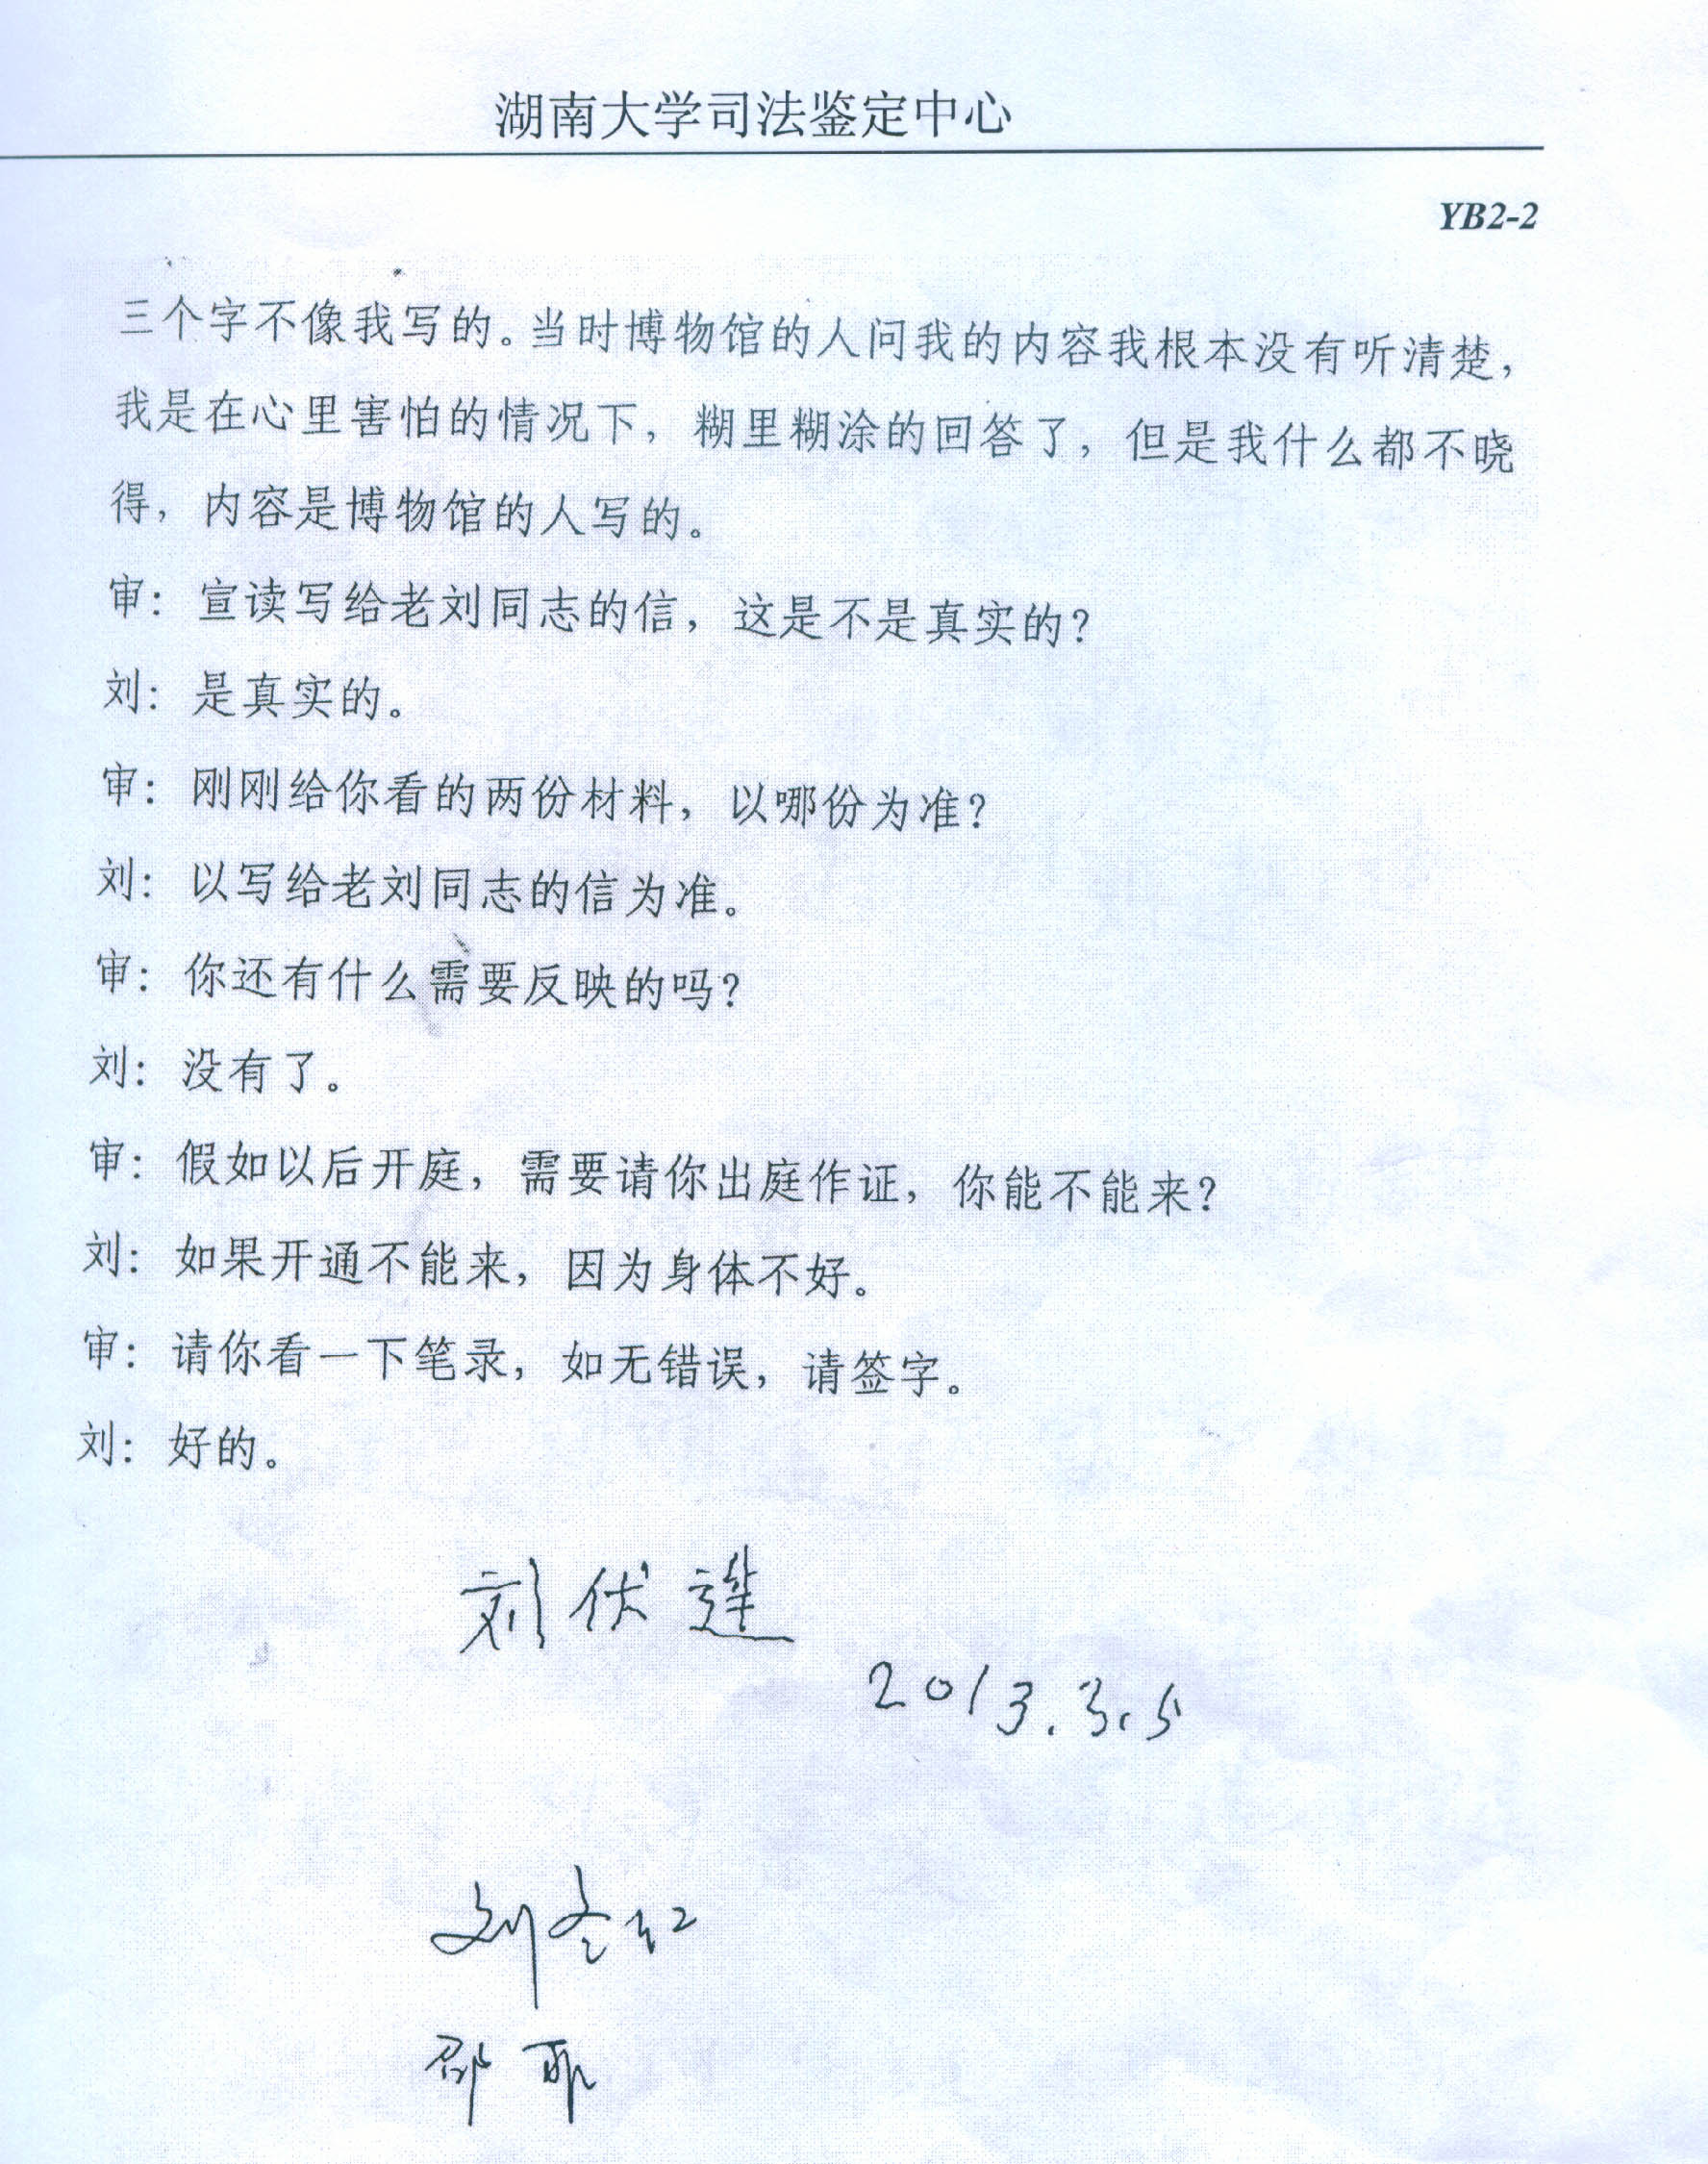 湖南大学司法鉴定中心
YB2-2
三个字不像我写的。当时博物馆的人问我的内容我根本没有听清楚，
我是在心里害怕的情况下，糊里糊涂的回答了，但是我什么都不晓
得，内容是博物馆的人写的。
审：宣读写给老刘同志的信，这是不是真实的？
刘：是真实的。
审：刚刚给你看的两份材料，以哪份为准？
刘：以写给老刘同志的信为准。
审：你还有什么需要反映的吗？
刘：没有了。
审：假如以后开庭，需要请你出庭作证，你能不能来？
刘：如果开通不能来，因为身体不好。
审：请你看一下笔录，如无错误，请签字。
刘：好的。
刘伏莲
2013.3.5
刘冬红
邵